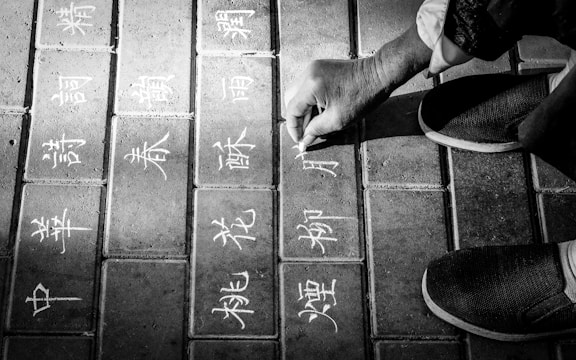 中華詩詞精
春韻
桃花酥雨潤
煙柳